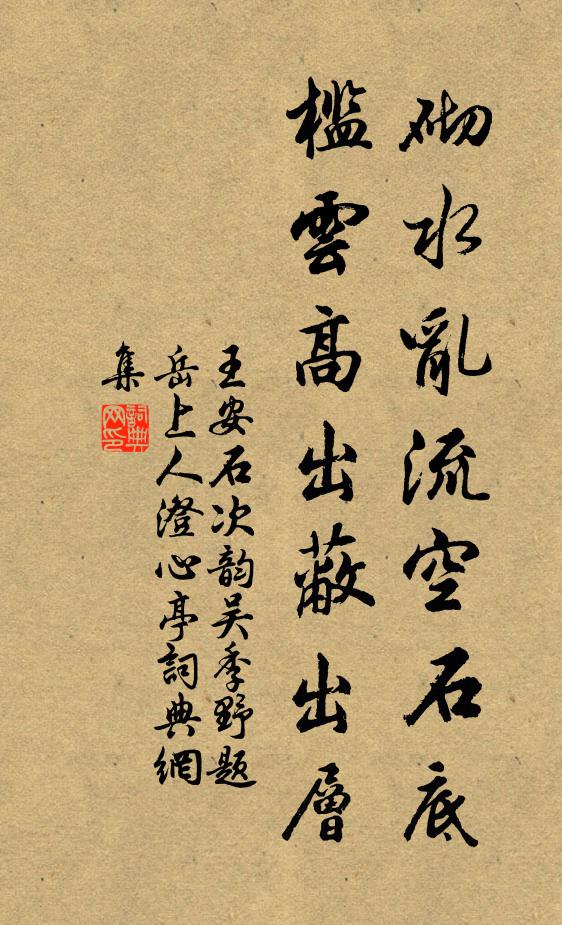 砌水亂流空石底
檻雲高出蔽出層
王安石次韵吴季野題
岳上人澄心亭詞典網
集
詞典
网印